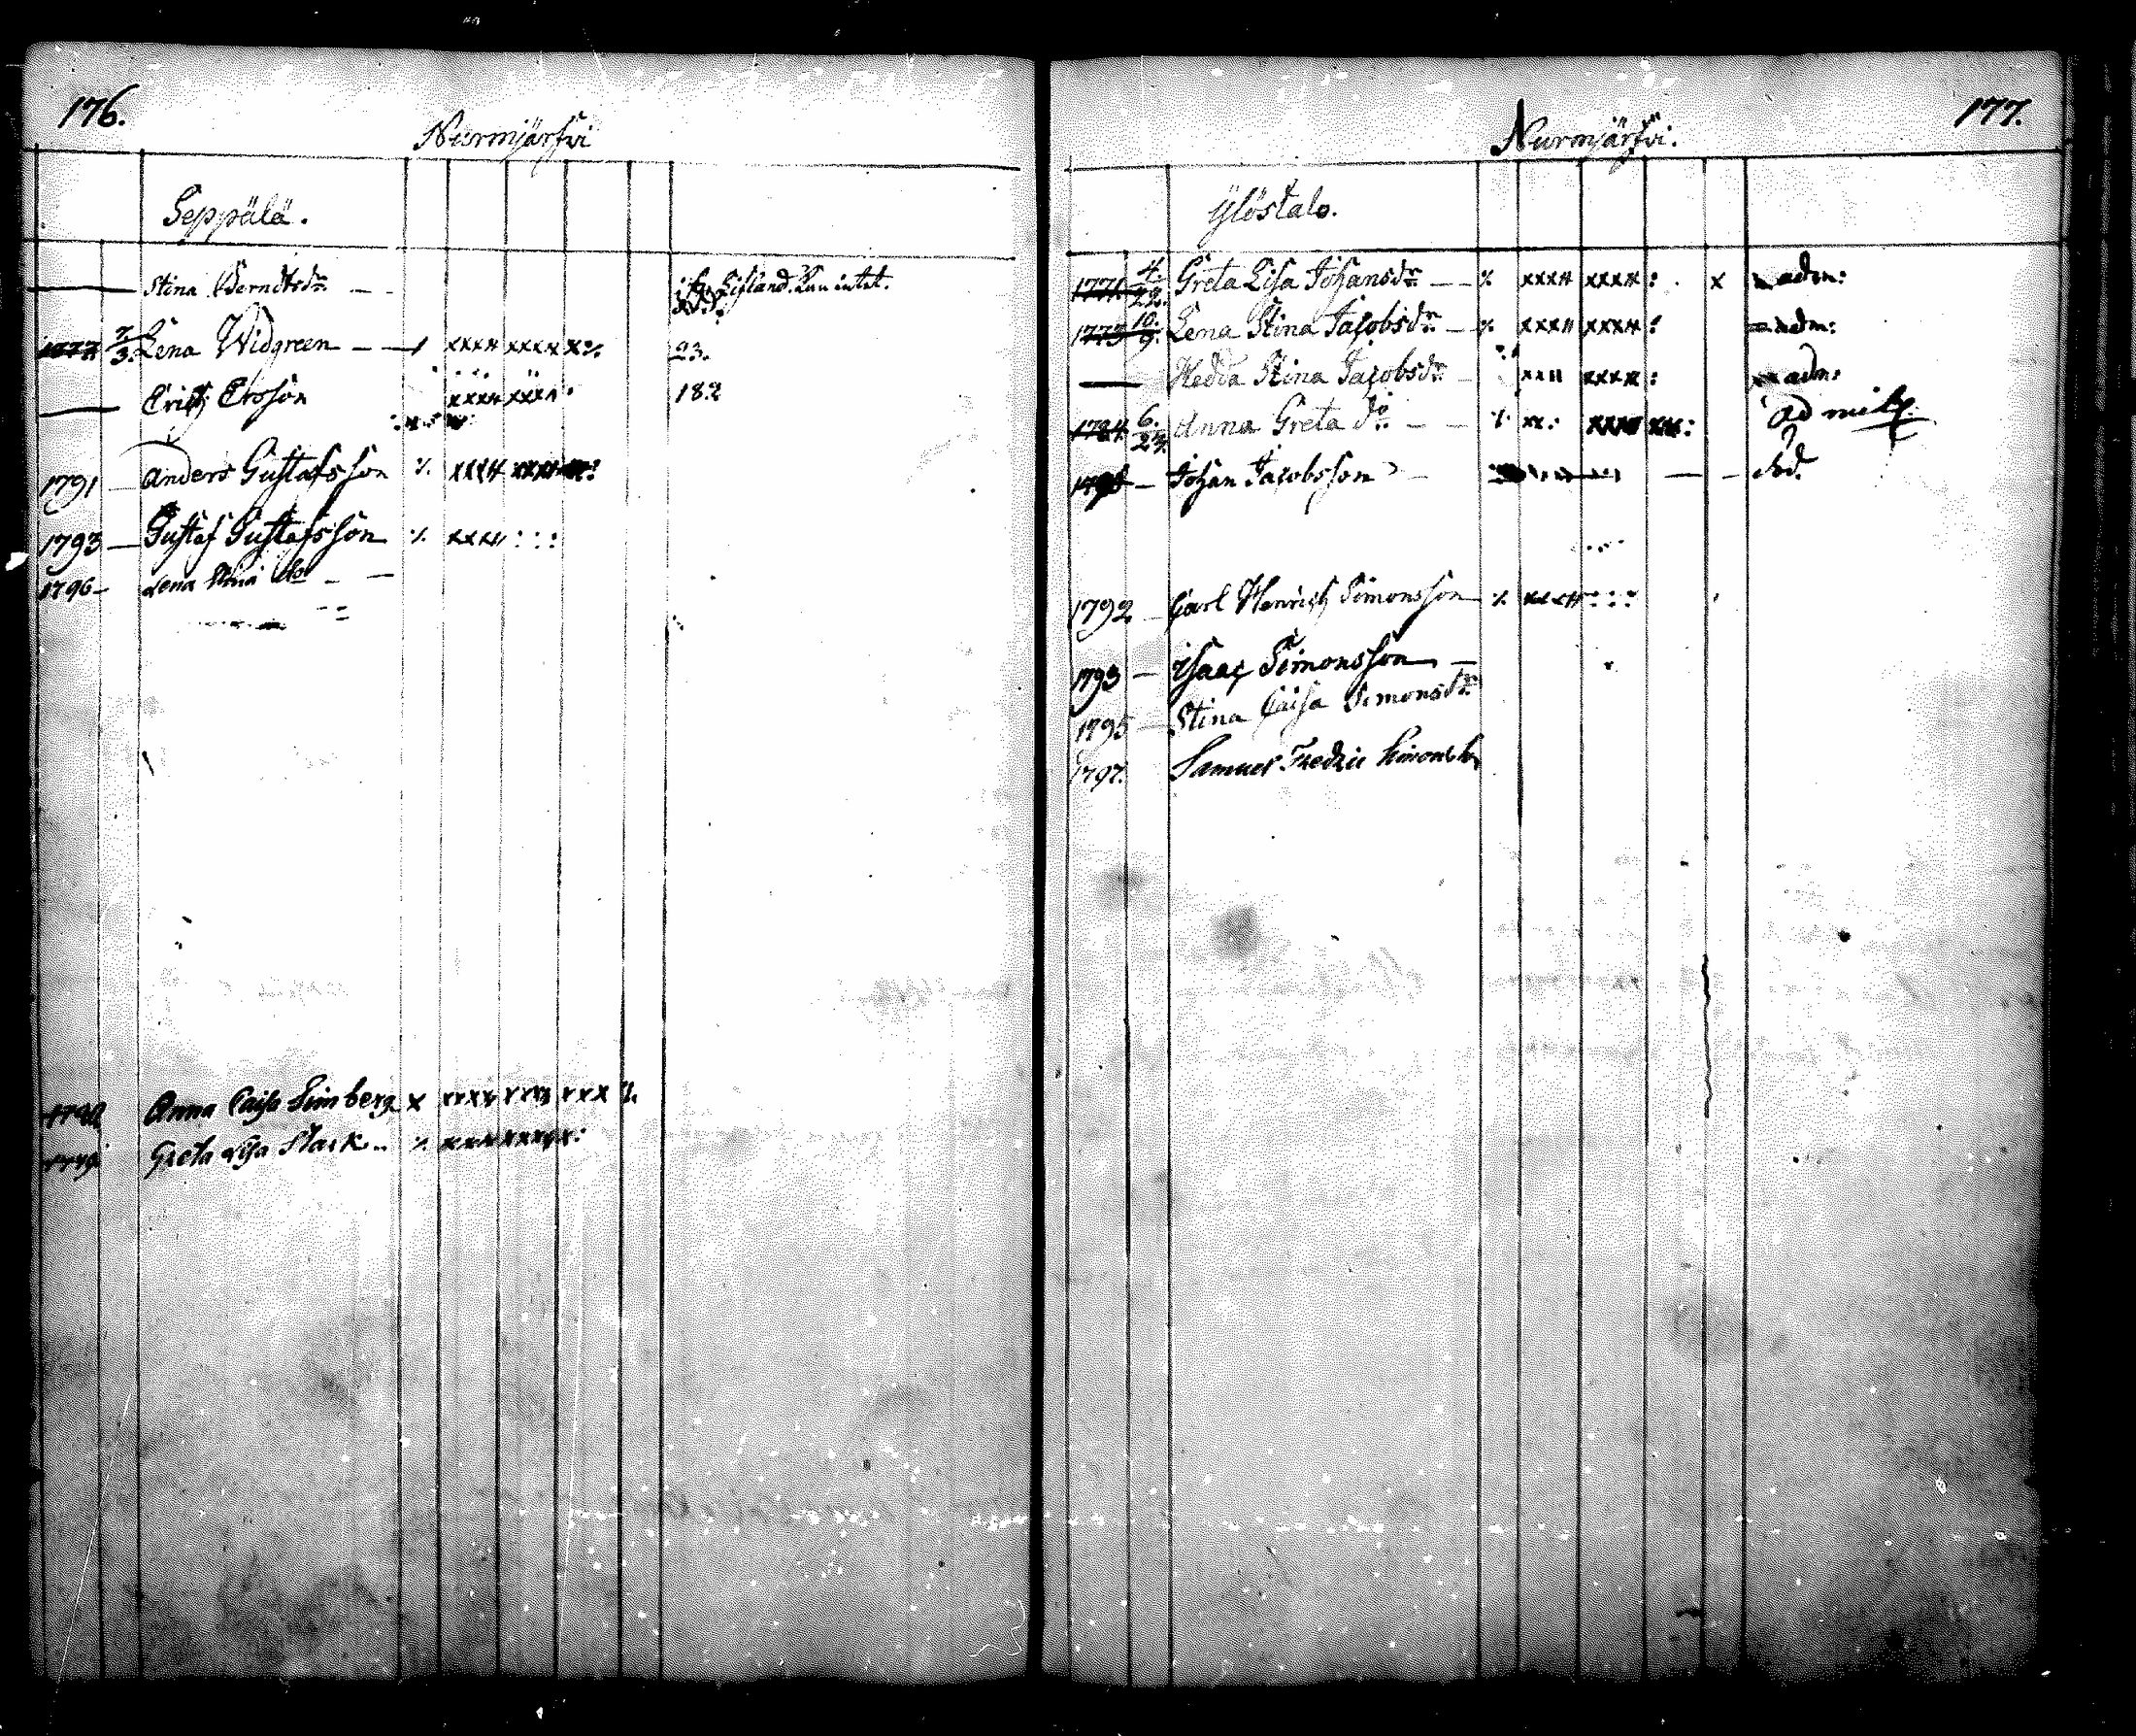 176.
Nurmijärfvi
Seppälä.
Stina Berndtsdr.
i Lifland. Kan intet.
7/3. Lena Widgreen xxxx xxxx x 23.
Erich Ersson xxxx xxxx 182
1791 Anders Gustafsson ⁒ xxxx xxxx
1793 Gustaf Gustafsson ⁒ xxxx
1796 Lena Stina do
Anna Caisa Limberg x xxxx xxxx xxx
Greta Lisa Stark ⁒
177.
Nurmjärfvi.
Ylöstalo.
1771. 4./22. Greta Lisa Johansdr. ⁒ xxxx xxxx : x adm:
1773 10./9. Lena Stina Jacobsdr. ⁒ xxxx xxxx : adm:
Hedda Stina Jacobsdr. xxxx : adm:
1784 6./24. Anna Greta do ⁒ xx. xxxx xx: admitt.
Johan Jacobsson
1792 Carl Henrich Simonsson ⁒ xxxx
1793 Isaac Simonsson
1795 Stina Caisa Simonsdr.
1797. Samuel Fredric Simonsson